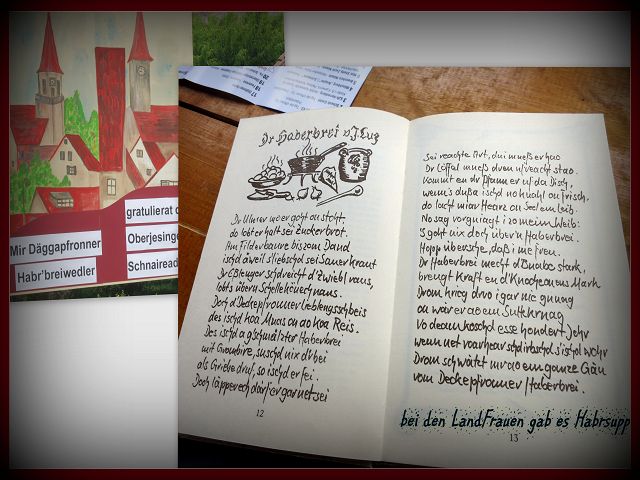 Mir Däggapfronner
Habr'breiwedler
gratulierat d
Oberjesinge
Schnairead
Dr Haberbrei
Dr Ulmer wo er goht ond stoht,
do lobt er halt sei Zuckerbrot.
Am Filderbaure bis zom Dand
ischd äweil s liebschd sei Sauerkraut
Dr Eßlenger schdreicht d'Zwiebl raus,
lobts übers Schellekönechs naus.
Doch d Deckepfronner Lieblingsschbeis
des ischd koa Muas on ao koa Reis.
Des ischd a gschmälzter Haberbrei
mit Grombire, suschd nix drbei
als Griebe druf, so isch er fei.
Doch läpperech därf er gar net sei
12
Sei reachte Art, dui mueß er hao
Dr Löffel mueß dren ufreacht stao.
Kommt en dr Pfanne er uf da Disch,
wenn's dußa ischd no küahl on frisch,
do lacht mir's Hearz on Seel em Leib.
No sag vorgniagt i zo meim Weib:
's goht nix doch über'n Haberbrei.
Hopp übersche, daß i me freu.
Dr Haberbrei mecht d'Buabe stark,
brengt Kraft en d'Knoche ons Mark
Drom krieg drvo i gar nie gnung
on wär er ao em Suttekruag
Vo deam koschd esse hondert Johr
wenn net voarhear schdirbschd s'ischd wohr
Drom schwätzt mr ao em ganze Gäu
vom Deckepfronner Haberbrei.
13
bei den LandFrauen gab es Habrsupp